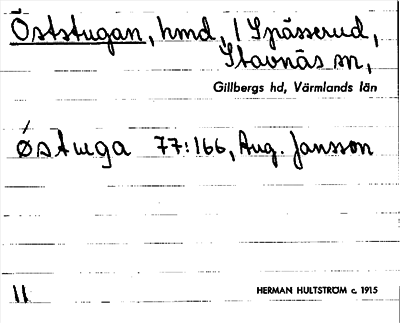 Öststugan, hmd, i Spässerud,
Stavnäs sn,
Gillbergs hd, Värmlands län
ǿstuga 77:166, Aug. Jansson
11
HERMAN HULTSTRÖM c. 1915